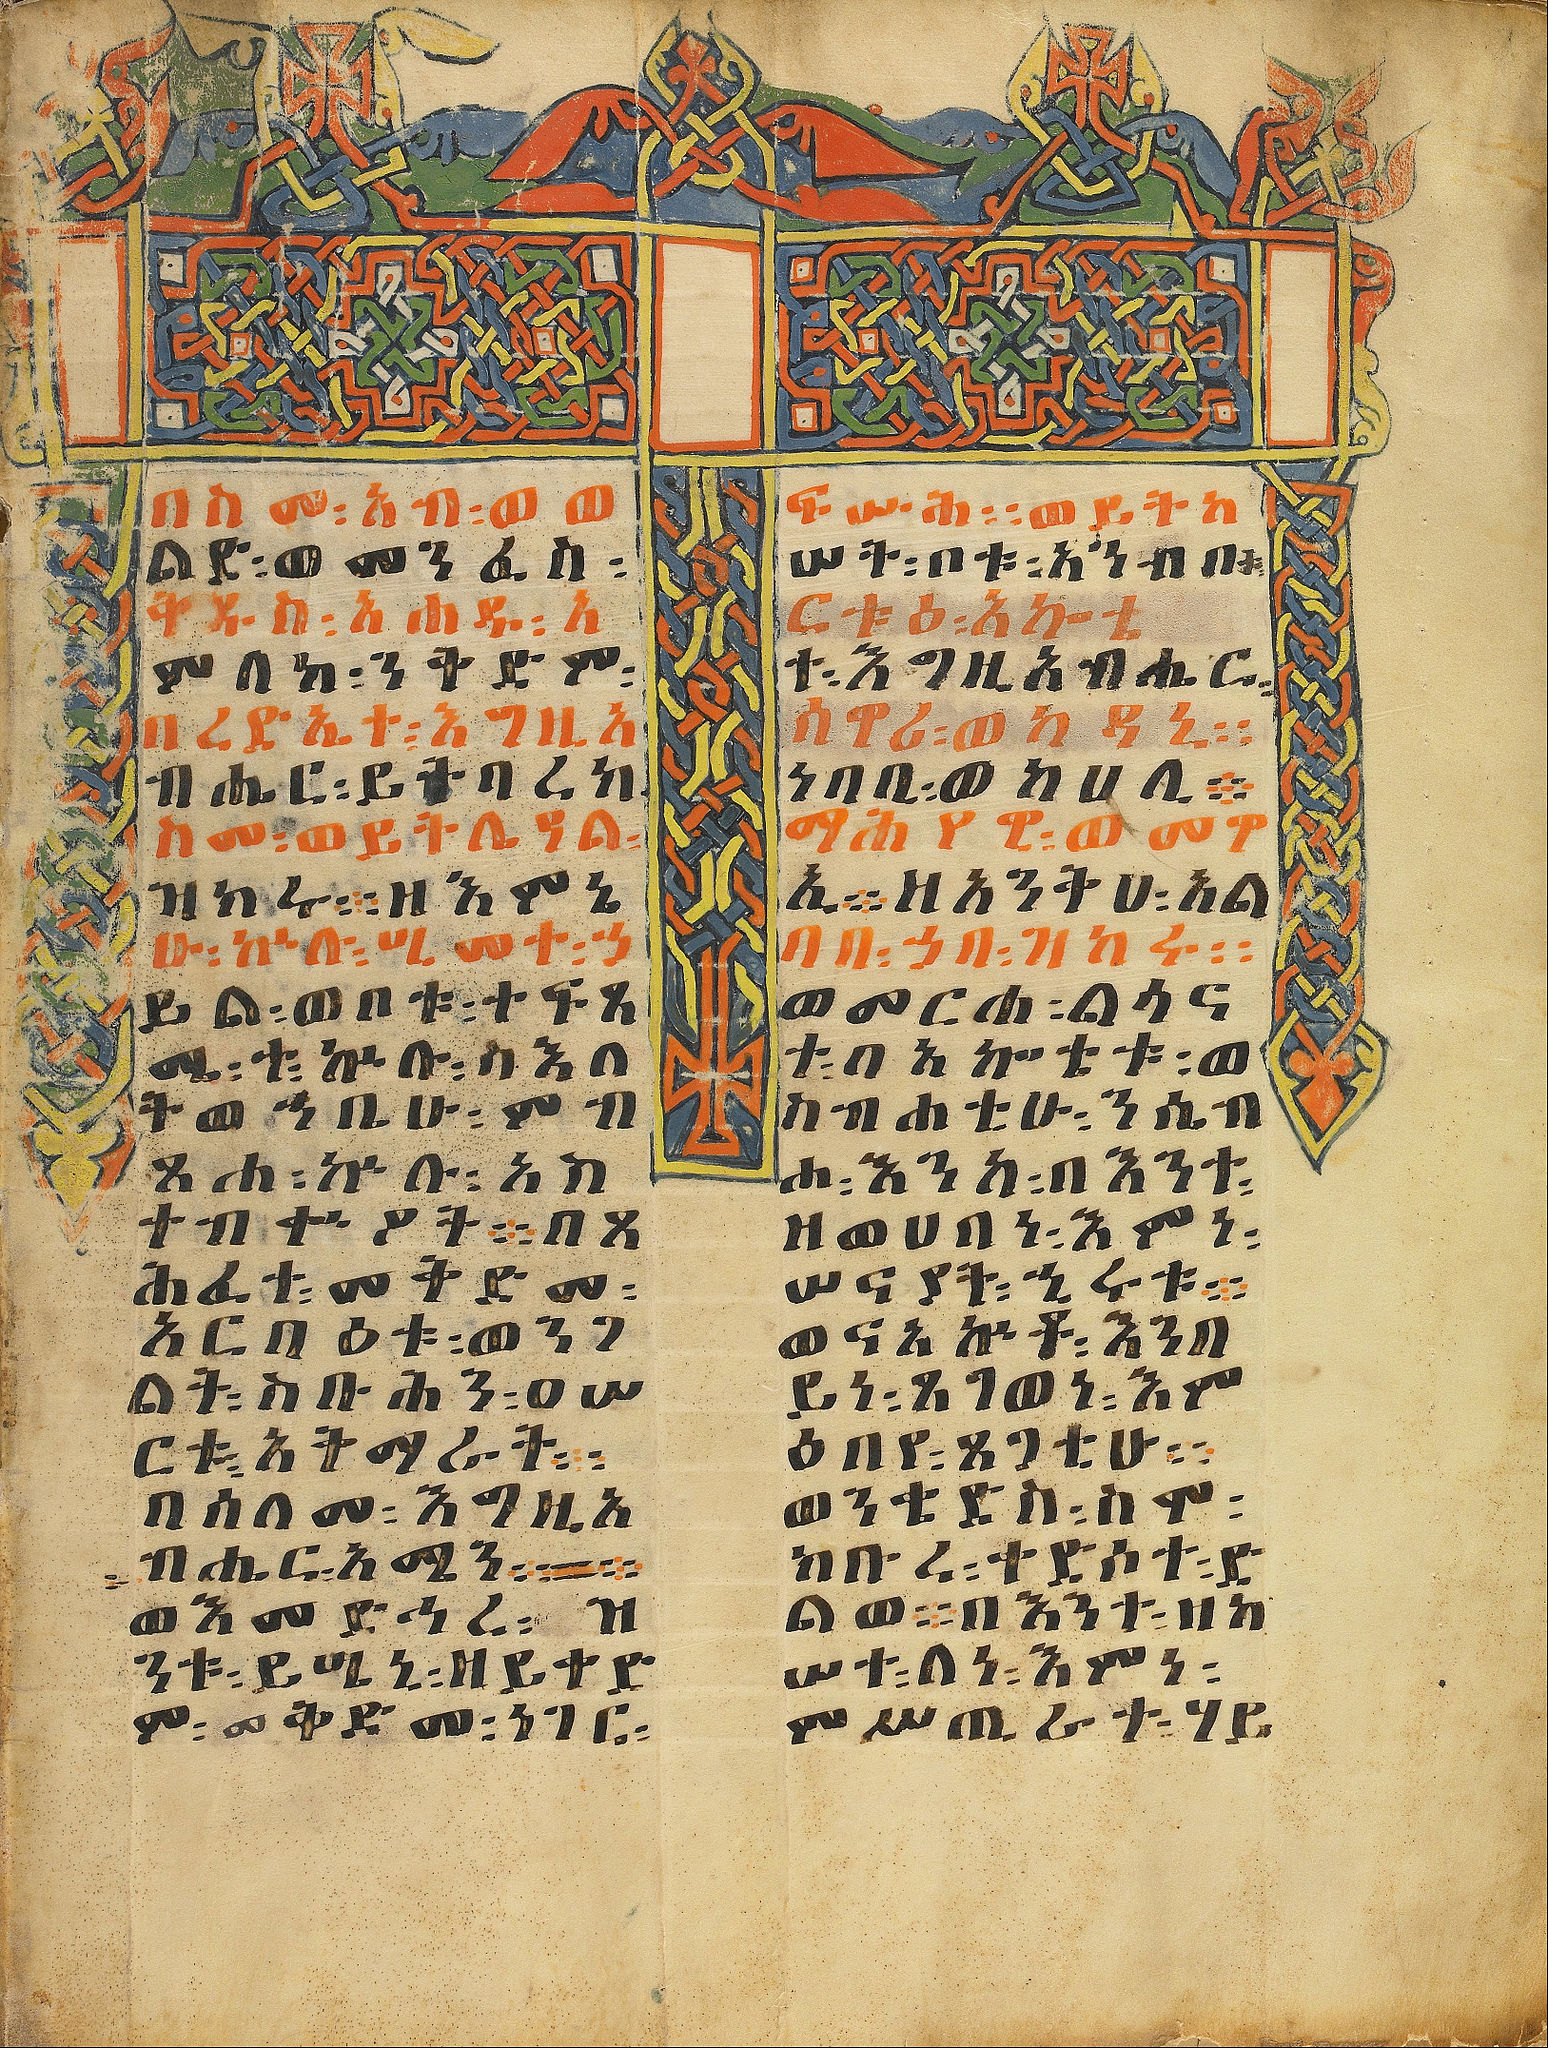 በስመ፡ አብ፡ ወወ
ልድ፡ ወመንፈስ፡
ቅዱስ፡ አሐዱ፡ አ
ምላክ፡ ንቅድም፡
በረድኤተ፡ እግዚአ
ብሔር፡ ይትባረክ
ስሙ፡ ወይትሌዓል፡
ዝክሩ፨ ዘእምኔ
ሁ፡ ኵሉ፡ ሢመተ፡ ኃ
ይል፡ ወቦቱ፡ ተፍጻ
ሜቱ፡ ኵሉ፡ ስእለ
ት ወኀቤሁ፡ ምብ
ጻሐ፡ ኵሉ፡ አስ
ተብቍዖት፨ በጻ
ሕፈተ፡ መቅድመ፡
አርባዕቱ፡ ወንገ
ልት፡ ስቡሕን፡ ዐሠ
ርቱ፡ አትማራት።
በሰላመ፡ እግዚአ
ብሔር፡ አሜን፨
ወእመድኅረ፡ ዝ
ንቱ፡ ይሤኒ፡ ዘይቀድ
ም፡ መቅድመ፡ ነገር፡
ፍሡሕ። ወይትከ
ሠት፡ ቦቱ፡ እንብበ፡
ርቱዕ፡ አኰቴ
ተ፡ እግዚአብሔር፡
ሰዋሪ፡ ወከዳኒ።
ነባቢ፡ ወከሀሊ፨
ማሕየዊ፡ ወመዋ
ኢ፨ ዘአንትሀ፡ አል
ባበ፡ ኃበ፡ ዝክሩ።
ወመርሐ፡ ልሳና
ተ፡ በአኰቴቱ፡ ወ
ስብሐቲሁ፡ ንሴብ
ሖ፡ እንከ፡ በእንተ፡
ዘወሀበነ፡ እምነ፡
ሠናያት፡ ኂሩቱ፨
ወናአኵቶ፡ እንበ
ይነ፡ ጸገወነ፡ እም
ዕበየ፡ ጸጋቲሁ።
ወንቄድስ፡ ስም፡
ክቡረ፡ ተድሶተ፡ ድ
ልወ፨ በእንተ፡ ዘከ
ሠተ፡ ለነ፡ እምነ፡
ምሥጢራተ፡ ሃይ